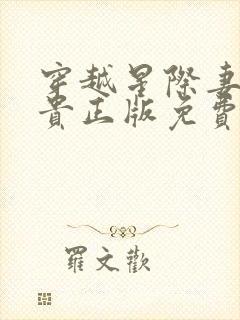 穿越星际妻
貴正版免費
羅文歡